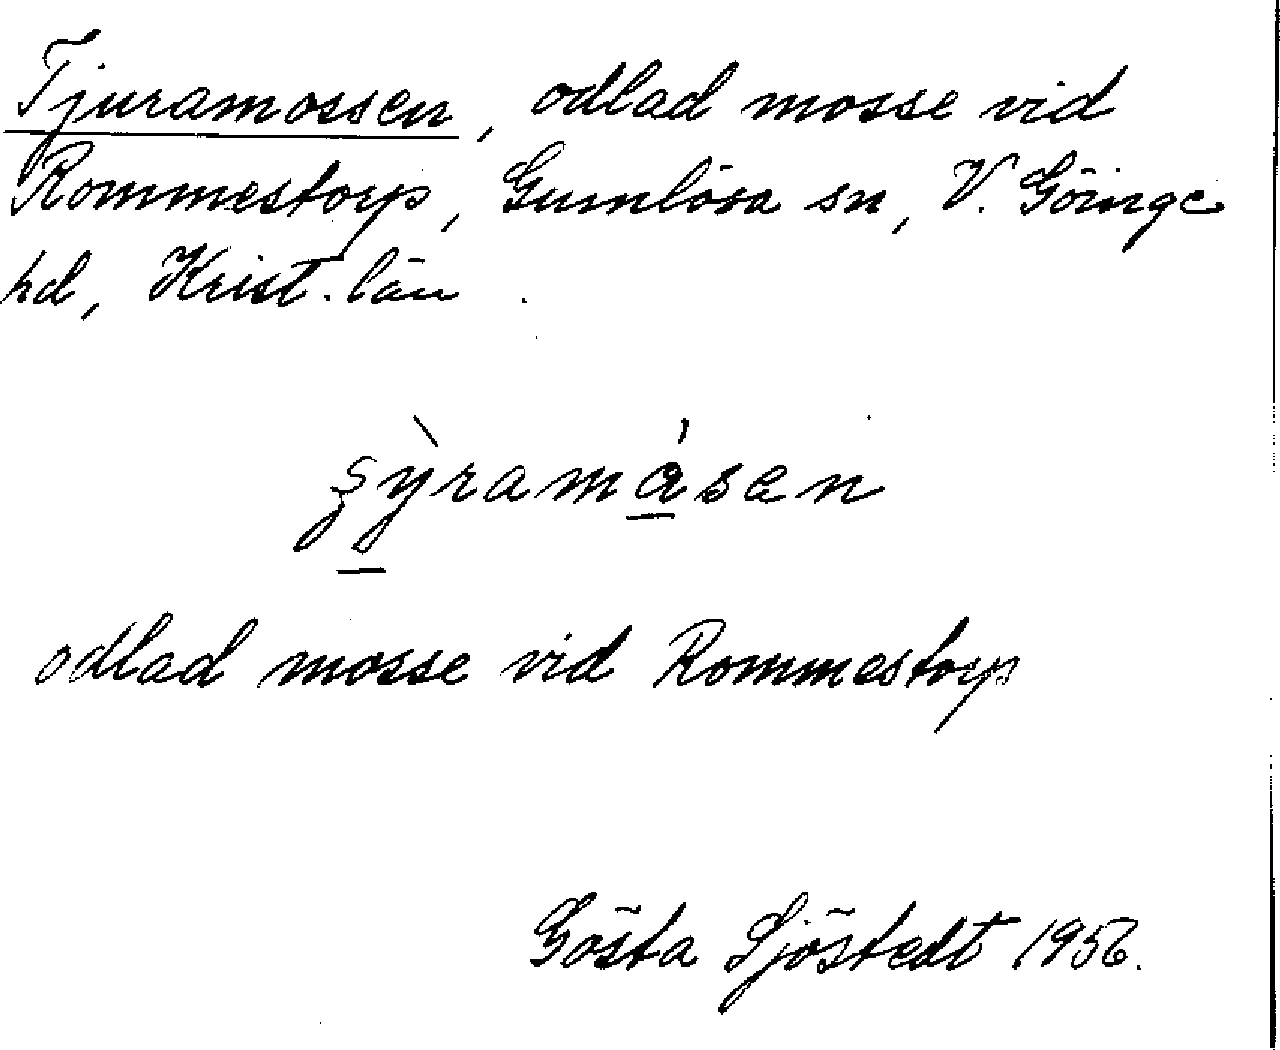 Tjuramossen, odlad mosse vid
Rommestorp, Gumlösa sn, V. Göinge
hd, Krist. län.
odlad mosse vid Rommestorp
Gösta Sjöstedt 1956.